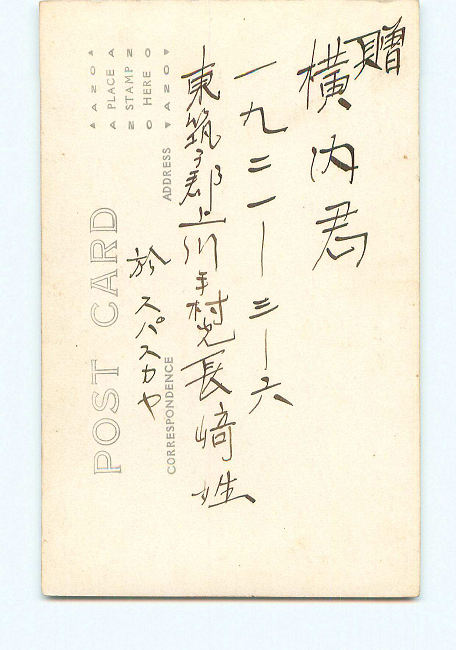 贈
横内君
一九二一ー三ー六
東筑摩郡上川手村 長崎姓
於スパスカヤ
POST CARD
CORRESPONDENCE
ADDRESS
PLACE
STAMP
HERE
AZO
AZO